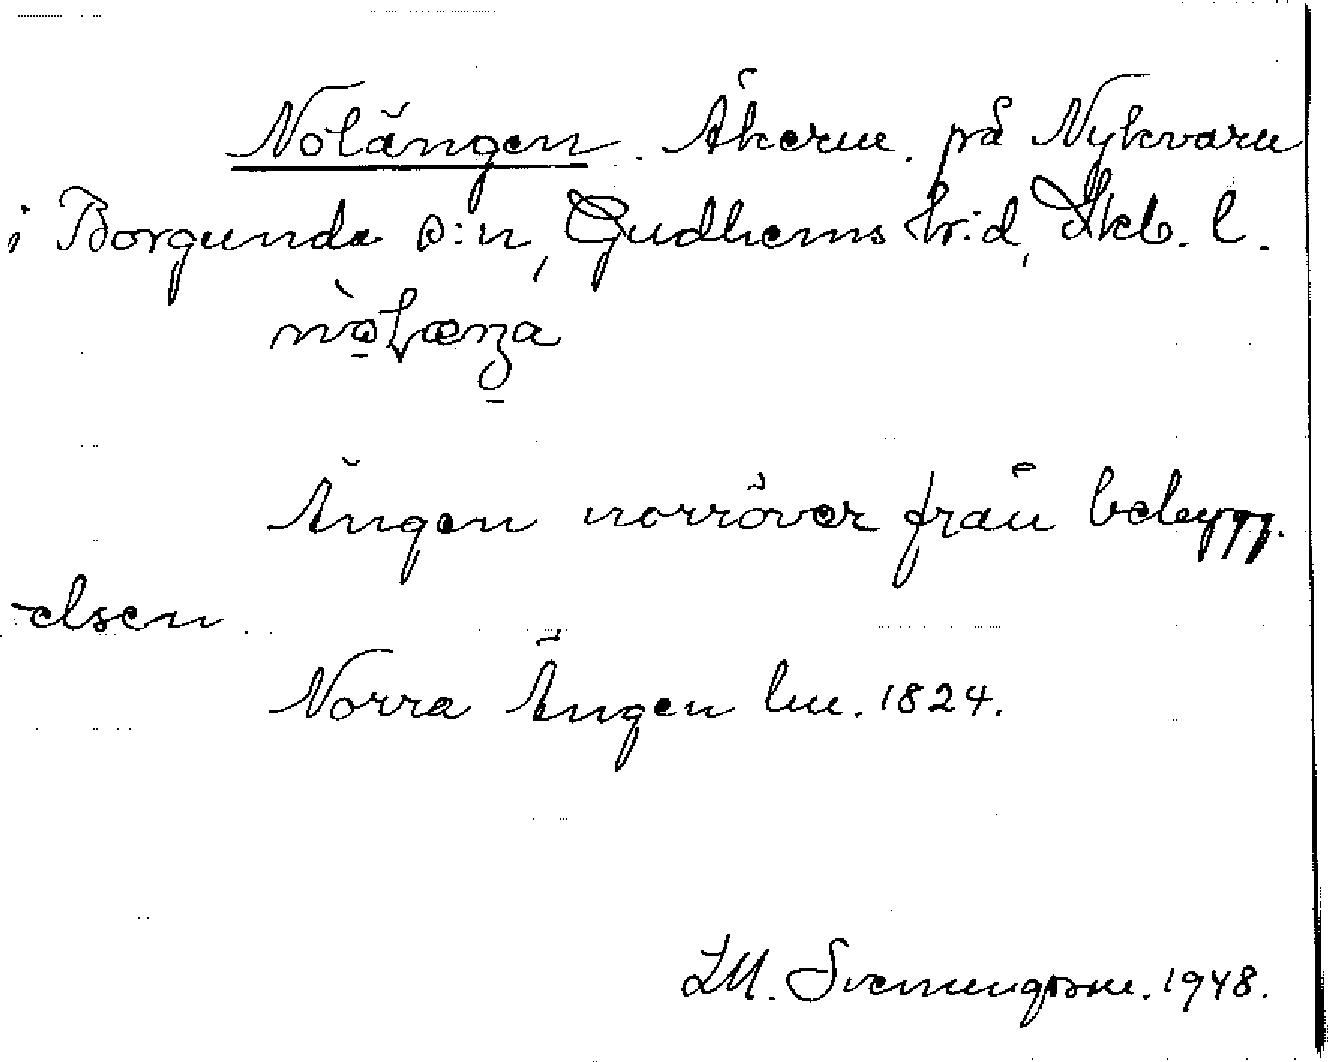 Nolängen. Åkerm. på Nykvarn
i Borgunda s:n, Gudhems hr:d, Skb. l.
Ängen norröver från bebygg.
-elsen.
Norra Ängen lm. 1824.
LM. Svenungsson. 1948.